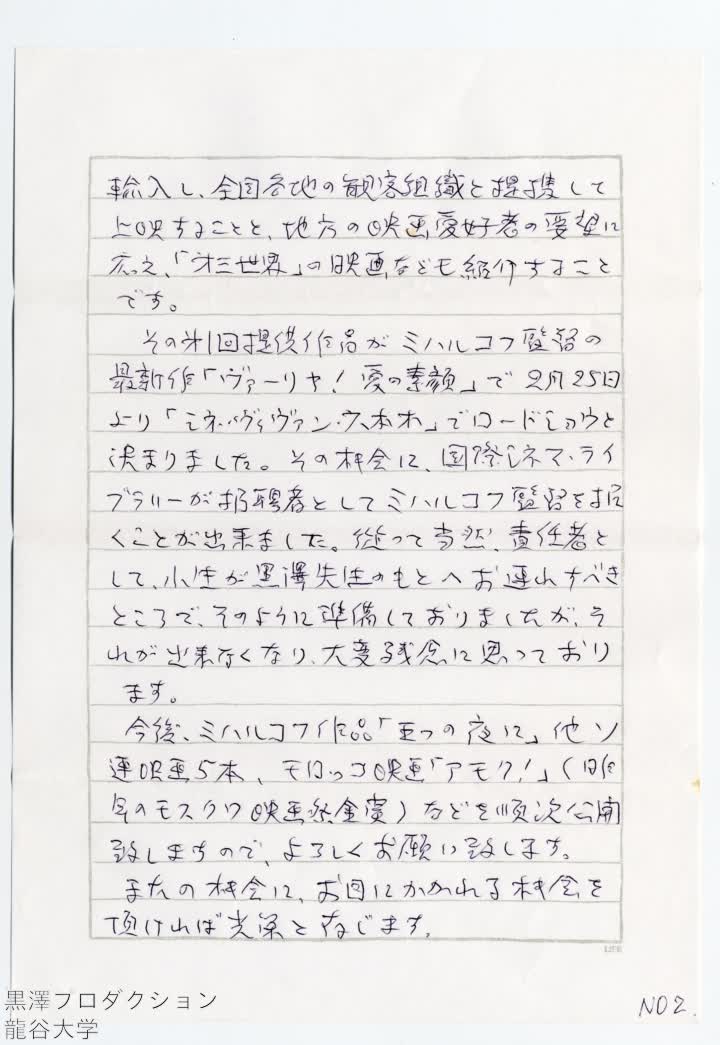 輸入し、全国各地の観客組織と提携して
上映することと、地方の映画愛好者の要望に
応え、「才三世界」の映画なども紹介すること
です。
その才1回提供作品がミハルコフ監督の
最新作「ヴァーリャ!愛の素顔」で2月25日
より「シネ・ヴィヴァン・六本木」でロードショウと
決まりました。その機会に、国際シネマ・ライ
ブラリーが招聘者としてミハルコフ監督を招
くことが出来ました。従って当然、責任者と
して、小生が黒澤先生のもとへお連れすべき
ところで、そのように準備しておりましたが、そ
れが出来なくなり、大変残念に思っており
ます。
今後、ミハルコフ作品「五つの夜に」他ソ
連映画5本、モロッコ映画「アモク!」(昨
年のモスクワ映画祭金賞)などを順次公開
致しますので、よろしくお願い致します。
またの機会に、お目にかかれる機会を
頂ければ光栄と存じます。
LIFE
NO2.
黒澤プロダクション
龍谷大学